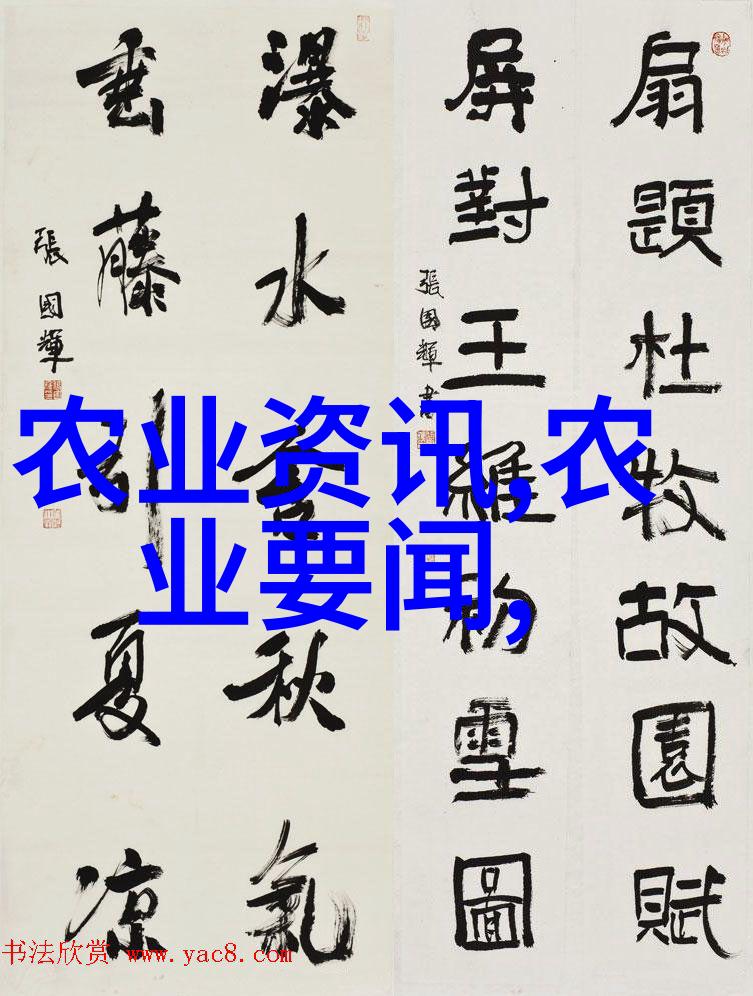 扇題杜牧故園賦
屏對王維初雪圖
張國輝書
瀑水含秋氣
垂藤引夏涼
張國輝
农业资讯,农
业要闻,
书法欣赏 www.yac8.com